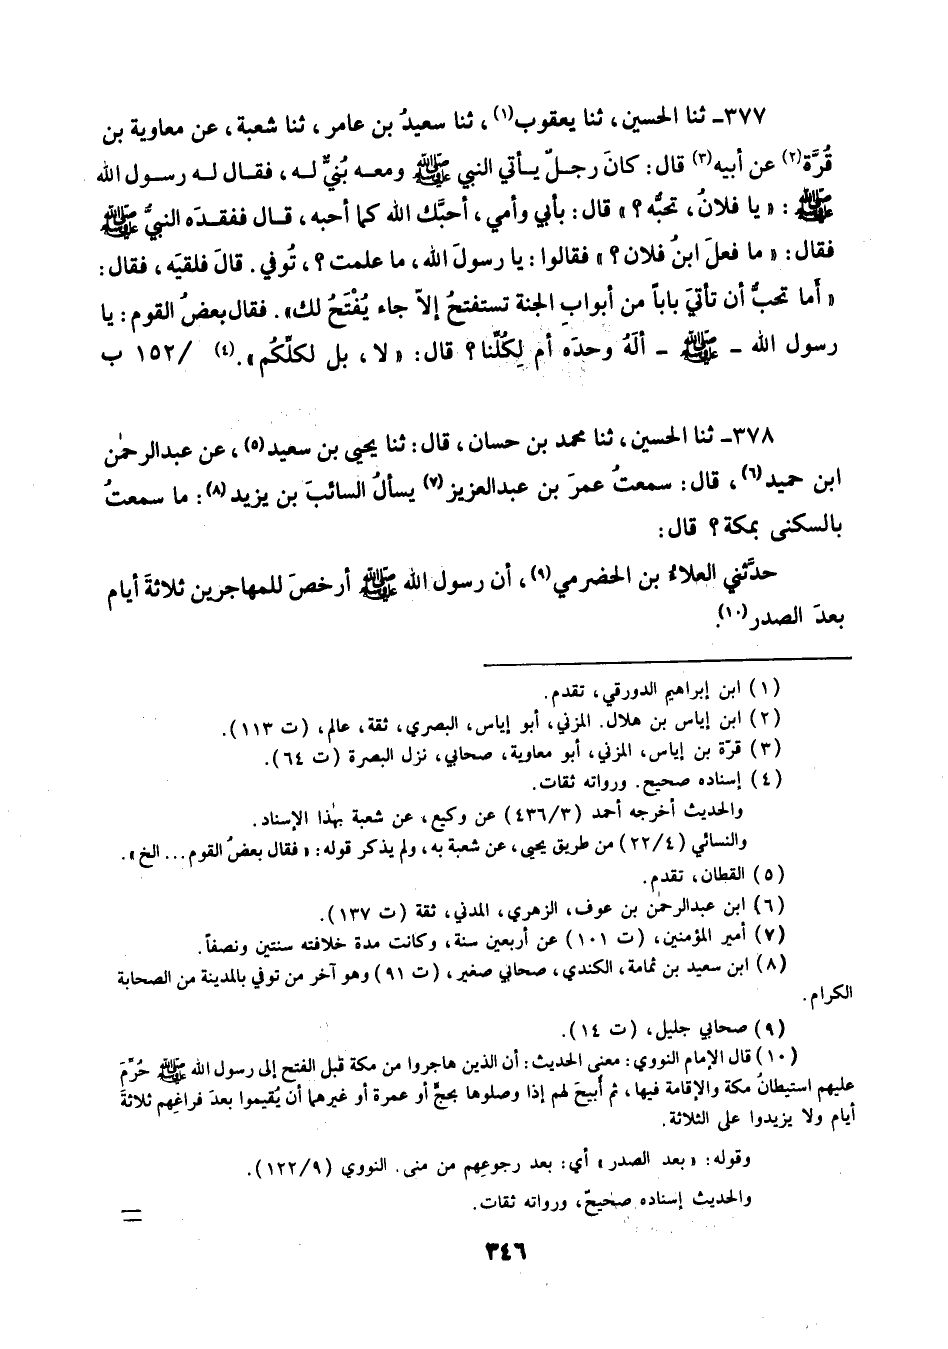 ٣٧٧ـ ثنا الحسين، ثنا يعقوب(١)، ثنا سعيدُ بن عامر، ثنا شعبة، عن معاوية بن
قُرَّة(٢) عن أبيه(٣) قال: كانَ رجلٌ يأتي النبي ﷺ ومعه بُنيٌّ له، فقال له رسول الله
ﷺ: «يا فلانُ، تحبُّه؟» قال: بأبي وأمي، أحبَّك الله كما أحبه، قال ففقده النبيُّ ﷺ
فقال: «ما فعلَ ابنُ فلان؟» فقالوا: يا رسولَ الله، ما علمت؟، تُوفي. قالَ فلقيَه، فقال:
«أما تحبُّ أن تأتيَ باباً من أبوابِ الجنة تستفتحُ إلاّ جاء يُفْتَحُ لك». فقال بعضُ القوم: يا
رسول الله ـ ﷺ ـ ألَهُ وحدَه أم لِكُلِّنا؟ قال: «لا، بل لكلِّكُم».(٤) /١٥٢ ب
٣٧٨ـ ثنا الحسين، ثنا محمد بن حسان، قال: ثنا يحيى بن سعيد(٥)، عن عبدالرحمٰن
ابن حميد(٦)، قال: سمعتُ عمرَ بن عبدالعزيز(٧) يسألُ السائبَ بن يزيد(٨): ما سمعتُ
بالسكنى بمكة؟ قال:
حدَّثني العلاءُ بن الحضرمي(٩)، أن رسول الله ﷺ أرخصَ للمهاجرين ثلاثةَ أيام
بعدَ الصدر(١٠).
(١) ابن إبراهيم الدورقي، تقدم.
(٢) ابن إياس بن هلال. المزني، أبو إياس، البصري، ثقة، عالم، (ت ١١٣).
(٣) قرّة بن إياس، المزني، أبو معاوية، صحابي، نزل البصرة (ت ٦٤).
(٤) إسناده صحيح. ورواته ثقات.
والحديث أخرجه أحمد (٤٣٦/٣) عن وكيع، عن شعبة بهٰذا الإسناد.
والنسائي (٢٢/٤) من طريق يحيى، عن شعبة به، ولم يذكر قوله: «فقال بعضُ القوم... الخ».
(٥) القطان، تقدم.
(٦) ابن عبدالرحمٰن بن عوف، الزهري، المدني، ثقة (ت ١٣٧).
(٧) أمير المؤمنين، (ت ١٠١) عن أربعين سنة، وكانت مدة خلافته سنتين ونصفاً.
(٨) ابن سعيد بن ثمامة، الكندي، صحابي صغير، (ت ٩١) وهو آخر من توفي بالمدينة من الصحابة
الكرام.
(٩) صحابي جليل، (ت ١٤).
(١٠) قال الإمام النووي: معنى الحديث: أن الذين هاجروا من مكة قبل الفتح إلى رسول الله ﷺ حُرِّمَ
عليهم استيطانُ مكة والإقامة فيها، ثم أُبيحَ لهم إذا وصلوها بحجٍّ أو عمرة أو غيرهما أن يُقيموا بعدَ فراغِهم ثلاثةَ
أيام ولا يزيدوا على الثلاثة.
وقوله: «بعد الصدر» أي: بعد رجوعِهم من منى. النووي (١٢٢/٩).
والحديث إسناده صحيحٌ، ورواته ثقات.
=
٣٤٦